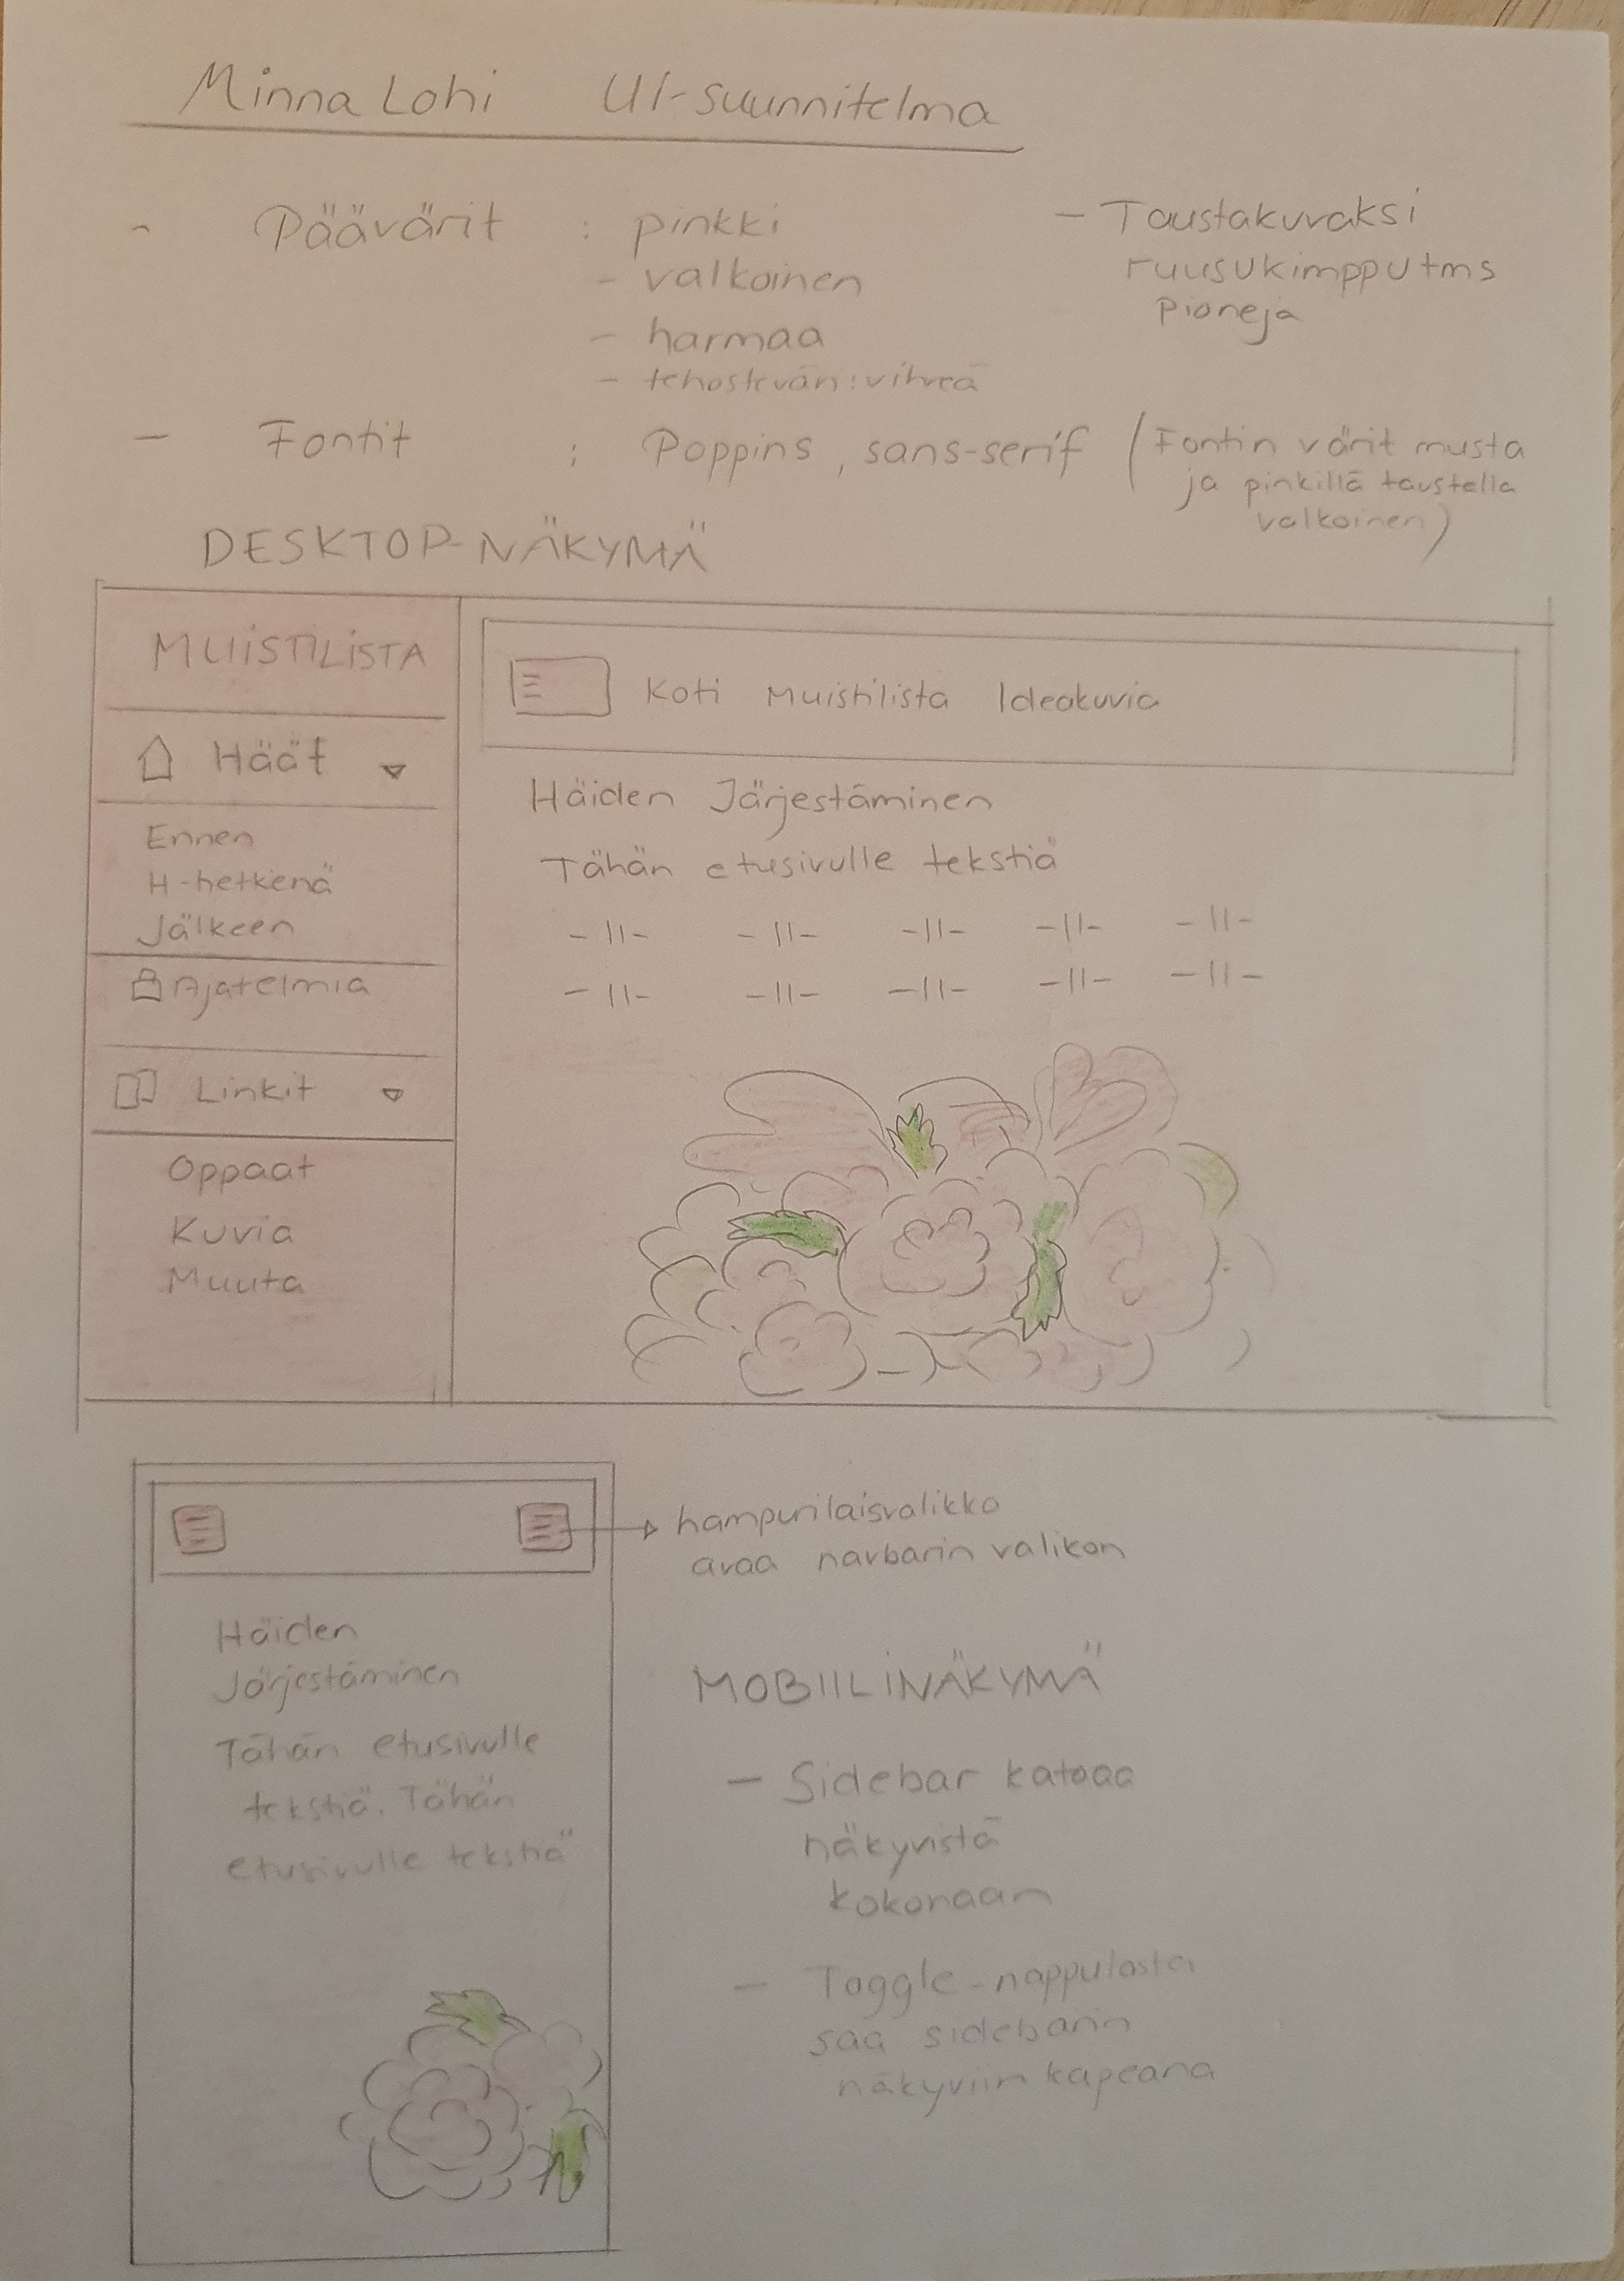 Minna Lohi UI-suunnitelma
- Päävärit : pinkki
- valkoinen
- harmaa
- tehostevän: vihreä
- Taustakuvaksi
ruusukimppu tms
pioneja
- Fontit : Poppins, sans-serif (Fontin värit musta
ja pinkillä taustella
valkoinen)
DESKTOP-NÄKYMÄ
MUISTILISTA
Häät
Ennen
H-hetkenä
Jälkeen
Ajatelmia
Linkit
Oppaat
Kuvia
Muuta
Koti Muistilista Ideakuvia
Häiden Järjestäminen
Tähän etusivulle tekstiä
-11- -11- -11- -11- -11-
-11- -11- -11- -11- -11-
hampurilaisvalikko
avaa navbarin valikon
Häiden
Järjestäminen
Tähän etusivulle
tekstiä. Tähän
etusivulle tekstiä
MOBIILINÄKYMÄ
- Sidebar katoaa
näkyvistä
kokonaan
- Toggle-nappulasta
saa sidebarin
näkyviin kapeana